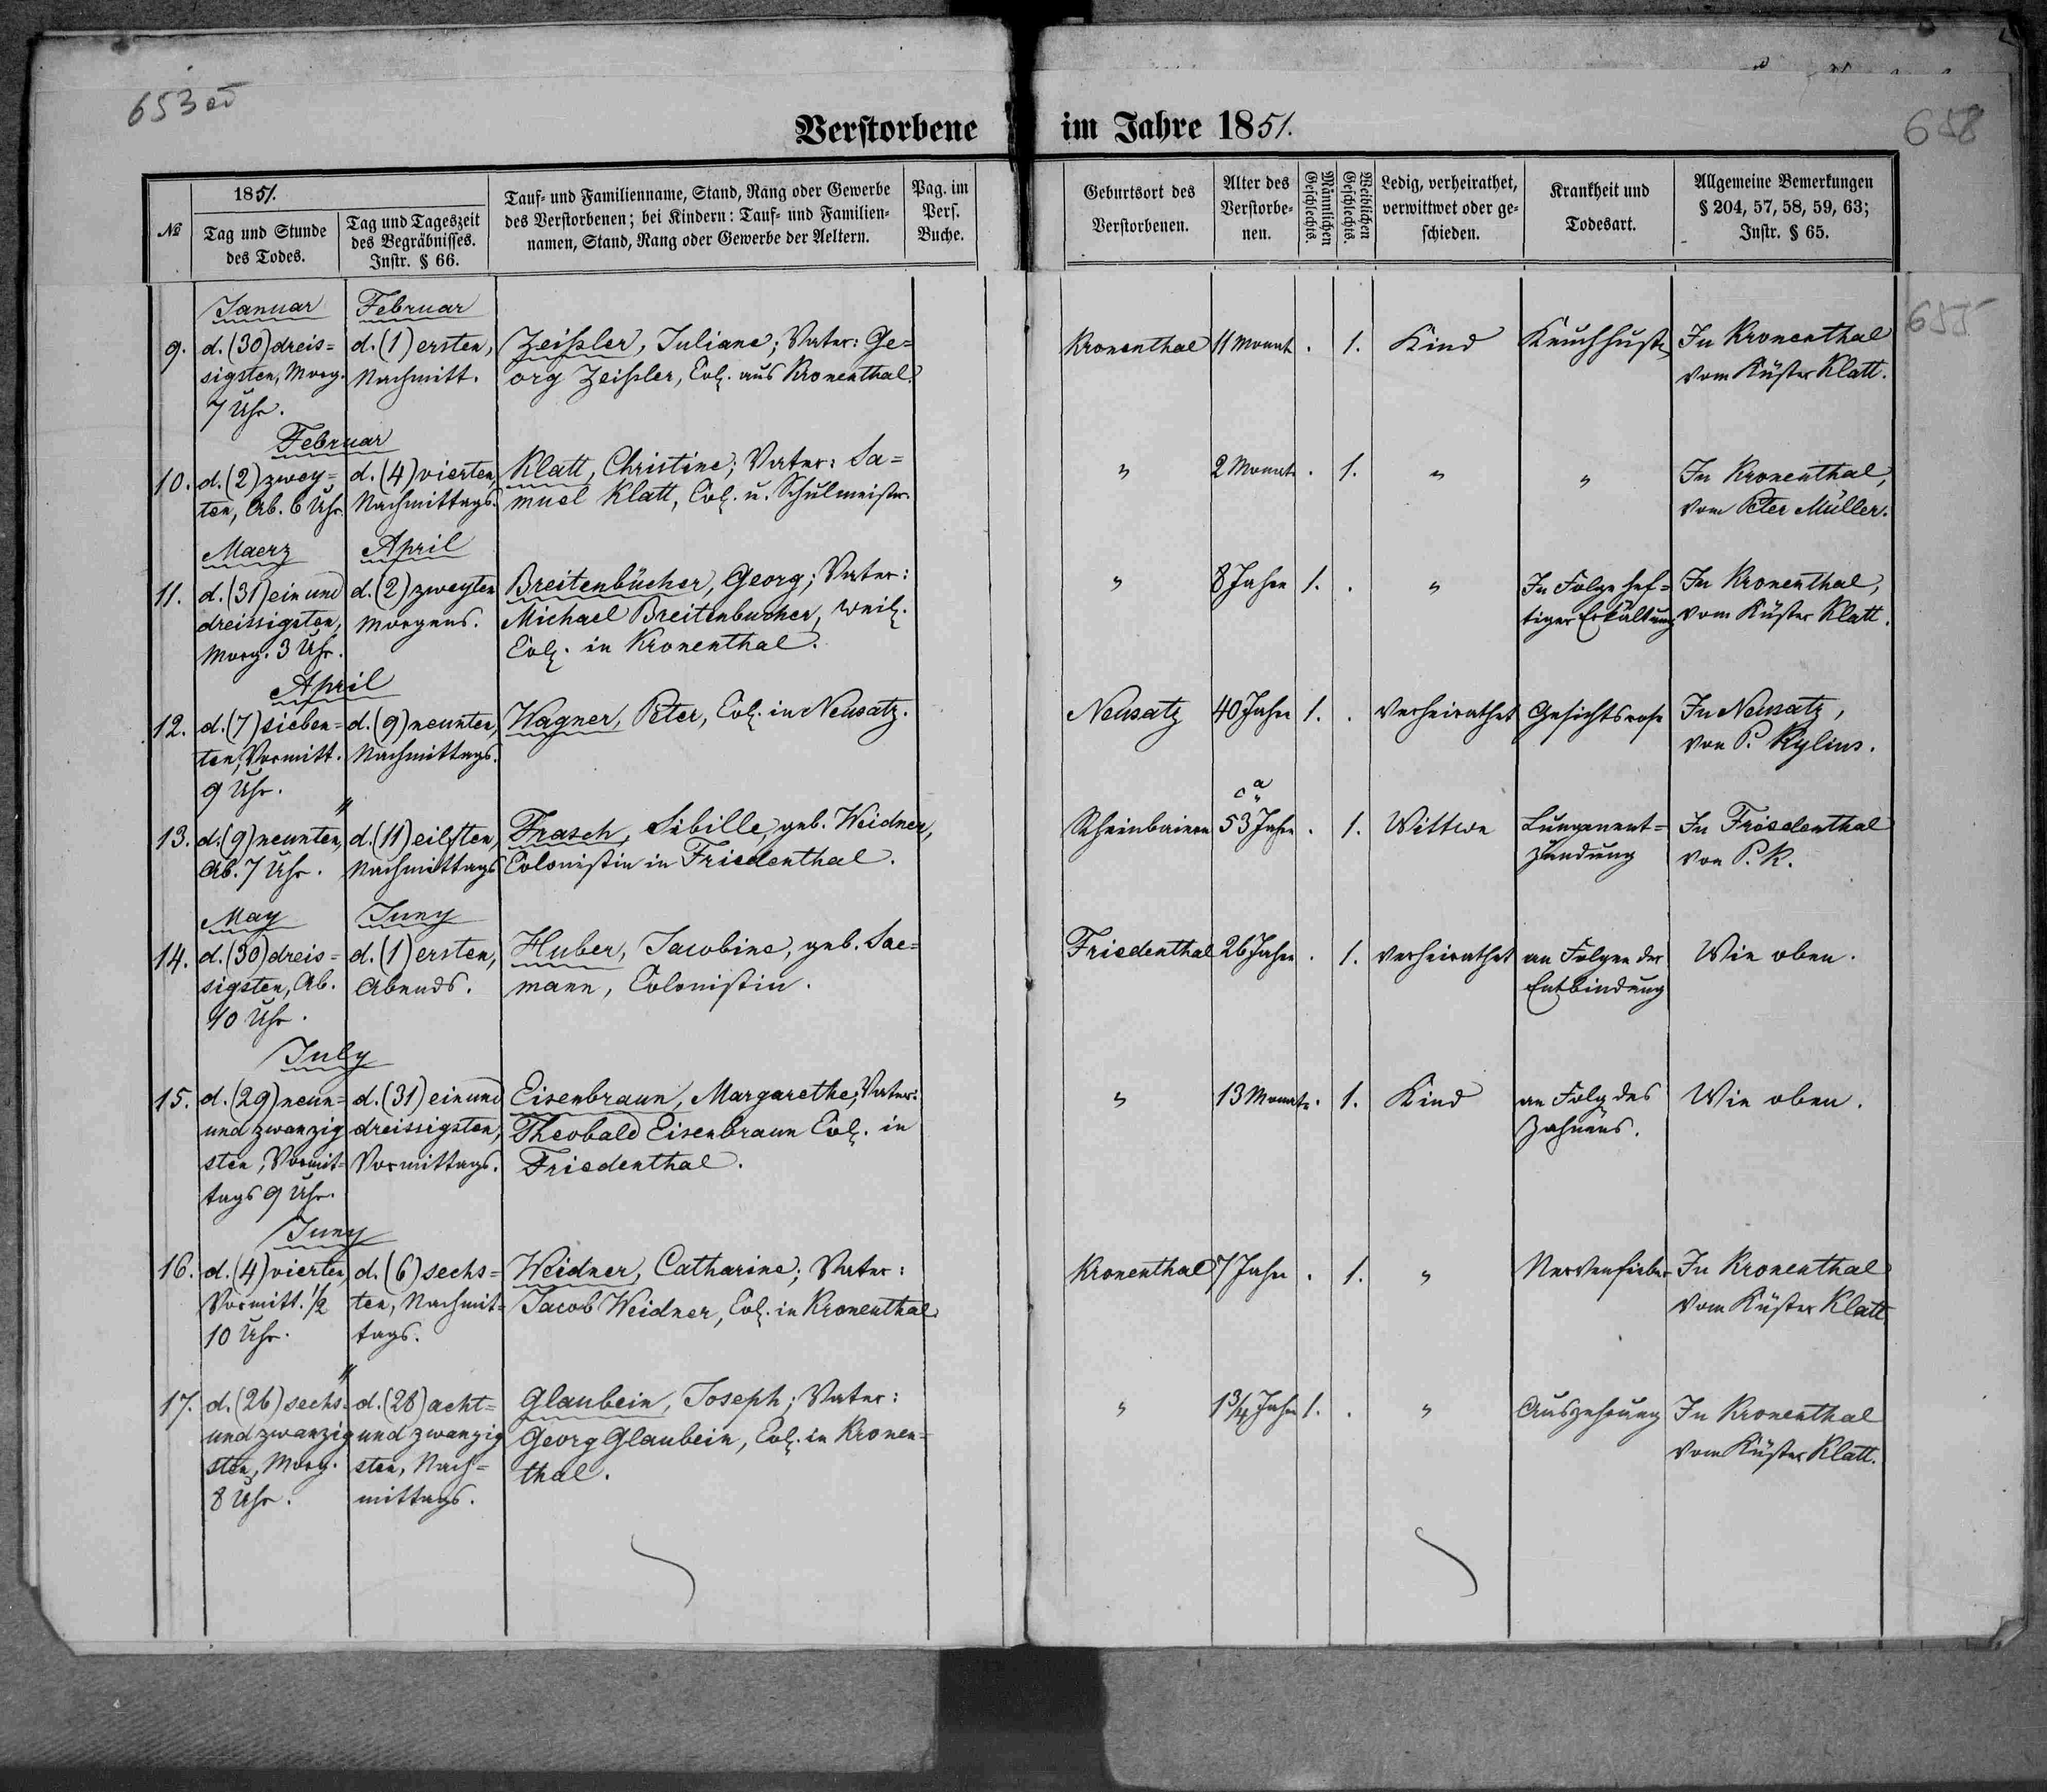 653 об
658
655
Verstorbene im Jahre 1851.
№
1851.
Tag und Stunde
des Todes.
Tag und Tageszeit
des Begräbnisses.
Instr. § 66.
Tauf- und Familienname, Stand, Rang oder Gewerbe
des Verstorbenen; bei Kindern: Tauf- und Familien-
namen, Stand, Rang oder Gewerbe der Aeltern.
Pag. im
Pers.
Buche.
Geburtsort des
Verstorbenen.
Alter des
Verstorbe-
nen.
Männlichen
Geschlechts.
Weiblichen
Geschlechts.
Ledig, verheirathet,
verwittwet oder ge-
schieden.
Krankheit und
Todesart.
Allgemeine Bemerkungen
§ 204, 57, 58, 59, 63;
Instr. § 65.
Januar
9. d. (30) dreis=
sigsten, Morg.
7 Uhr.
Februar
d. (1) ersten,
Nachmitt.
Zeißler, Juliane; Vater: Ge=
org Zeißler, Col. aus Kronenthal.
Kronenthal
11 Monat
.
1.
Kind
Keuchhusten
In Kronenthal
vom Küster Klatt.
Februar
10. d. (2) zwey=
ten, Ab. 6 Uhr.
d. (4) vierten,
Nachmittags.
Klatt, Christine; Vater: Sa=
muel Klatt, Col. u. Schulmeister.
"
2 Monate
.
1.
"
"
In Kronenthal,
vom Peter Müller.
Maerz
11. d. (31) ein und
dreissigsten,
Morg. 3 Uhr.
April
d. (2) zweyten
Morgens.
Breitenbücher, Georg; Vater:
Michael Breitenbucher, weil.
Col. in Kronenthal.
"
8 Jahre
1.
.
"
In Folge hef=
tiger Erkältung
In Kronenthal,
vom Küster Klatt.
April
12. d. (7) sieben=
ten, Vormitt.
9 Uhr.
d. (9) neunten,
Nachmittags.
Wagner, Peter, Col. in Neusatz.
Neusatz
40 Jahre
1.
.
verheirathet
Gesichtsrose
In Neusatz,
von P. Kylius.
"
13. d. (9) neunten,
Ab. 7 Uhr.
d. (11) eilften,
Nachmittags
Frasch, Sibille, geb. Weidner,
Colonistin in Friedenthal.
ca
53 Jahre
.
1.
Wittwe
Lungenent=
zündung
In Friedenthal
von P. K.
May
14. d. (30) dreis=
sigsten, Ab.
10 Uhr.
Juny
d. (1) ersten,
Abends.
Huber, Jacobine, geb. Sae=
mann, Colonistin.
Friedenthal
26 Jahre
.
1.
verheirathet
an Folgen der
Entbindung
Wie oben.
July
15. d. (29) neun=
und zwanzig
sten, Vormit=
tags 9 Uhr.
d. (31) ein und
dreissigsten,
Vormittags.
Eisenbraun, Margarethe; Vater:
Theobald Eisenbraun Col. in
Friedenthal.
"
13 Monate
.
1.
Kind
an Folg des
Zahnens.
Wie oben.
Juny
16. d. (4) vierten
Vormitt. 1/2
10 Uhr.
d. (6) sechs=
ten, Nachmit=
tags.
Weidner, Catharine; Vater:
Jacob Weidner, Col. in Kronenthal.
Kronenthal
7 Jahre
.
1.
"
Nervenfieber
In Kronenthal
vom Küster Klatt
"
17. d. (26) sechs=
und zwanzig
sten, Morg.
8 Uhr.
d. (28) acht=
und zwanzig
sten, Nach=
mittags.
Glaubein, Joseph; Vater:
Georg Glaubein, Col. in Kronen=
thal.
"
1 3/4 Jahre
1.
.
"
Auszehrung
In Kronenthal
vom Küster Klatt.